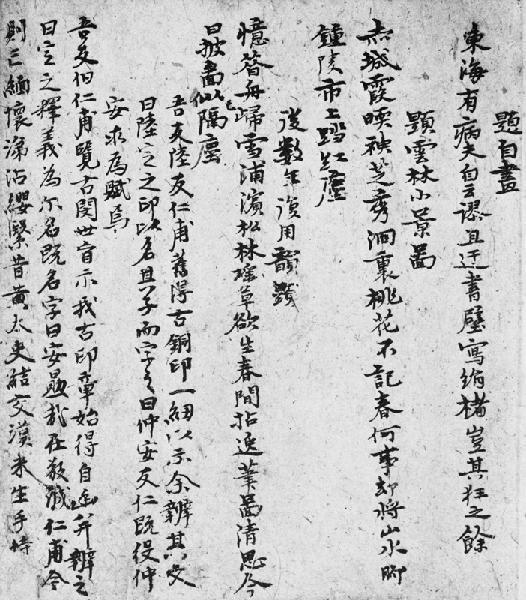 題自畫
東海有病夫自云謬且迂書壁寫絹楮豈其狂之餘
題雲林小景圖
赤城霞暖秧芝秀洞裏桃花不記春何事却將山水脚
鍾陵市上踏紅塵
後數年復用韻題
憶昔舟歸雪浦濱松林瑤草欲生春閒拈逸筆圖清思今
日披圖似隔塵
吾友陸友仁甫舊得古銅印一紐以示余辨其文
曰陸定之印以名其子而字之曰仲安友仁既役仲
安求為賦焉
吾友旧仁甫覽古閱世盲示我古印章始得自幽并辨之
曰定之釋義為尔名既名字曰安勗哉在敬戒仁甫今
則亡緬懷涕沾纓緊昔黃太史結交漢米生手持